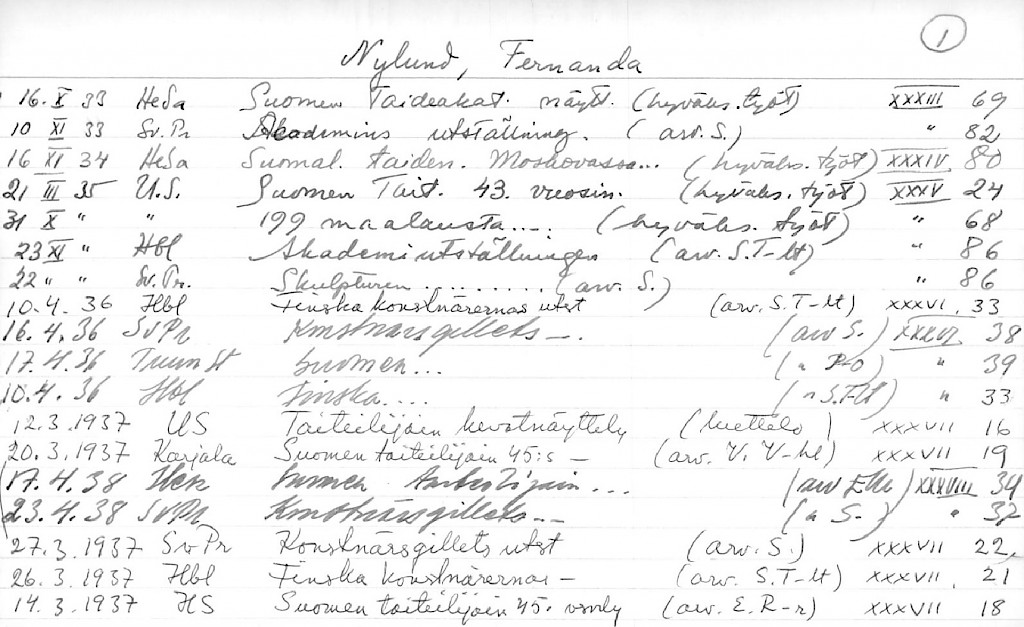 1
Nylund, Fernanda
16. X 33 HeSa Suomen Taideakat. näytt. (hyväks. työt) XXXIII 69
10 XI 33 Sv.Pr Akademins utställning. (arv. S.) " 82
16 XI 34 HeSa Suomal. taiden. Moskovassa... (hyväks. työt) XXXIV 80
21 III 35 U.S. Suomen Tait. 43. vuosin. (hyväks. työt) XXXV 24
31 X " " 199 maalausta.... (hyväks. työt) " 68
23 XI " Hbl Akademiutställningen (arv. S.T-lt) " 86
22 " " Sv.Pr. Skulpturen .......... (arv. S.) " 86
10.4. 36 Hbl Finska konstnärernas utst (arv. S.T-lt) XXXVI, 33
16.4.36 SvPr Konstnärsgillets -. (arv S.) XXXVI 38
17.4.36 Turun St Suomen... (" P-o) " 39
10.4.36 Hbl Finska.... (" S.T-lt) " 33
12.3.1937 US Taiteilijain kevätnäyttely (luettelo) XXXVII 16
20.3.1937 Karjala Suomen taiteilijain 45:s - (arv. V. V-hl) XXXVII 19
17.4.38 Suomen ... (arv ) XXXVIII 34
23.4.38 SvPr Konstnärsgillets -- (" S.) " 37
27.3.1937 SvPr Konstnärsgillets utst (arv. S.) XXXVII 22,
26.3.1937 Hbl Finska konstnärernas - (arv. S.T-lt) XXXVII, 21
14.3.1937 HS Suomen taiteilijain 45. vnly (arv. E. R-r) XXXVII 18